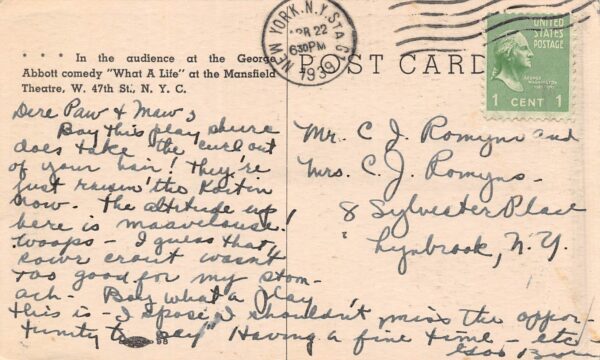 • • • • In the audience at the George
Abbott comedy "What A Life" at the Mansfield
Theatre, W. 47th St., N. Y. C.
NEW YORK, N.Y. STA. C
APR 22
6 30 PM
1939
POST CARD
UNITED
STATES
POSTAGE
GEORGE
WASHINGTON
1 CENT 1
Dere Paw & Maw,
Boy this play shure
does take the curl out
of your hair! They're
just raisin' the
now. The altitude up
here is maavelouse!
Woops - I guess that
sowr crout wasn't
too good for my stom-
ach. Boy what a play
this is - I spose I shouldn't miss the oppor-
tunity to say "Having a fine time - etc
Mr. C. J. Romyns and
Mrs. C. J. Romyns -
8 Sylvester Place
Lynbrook, N. Y.